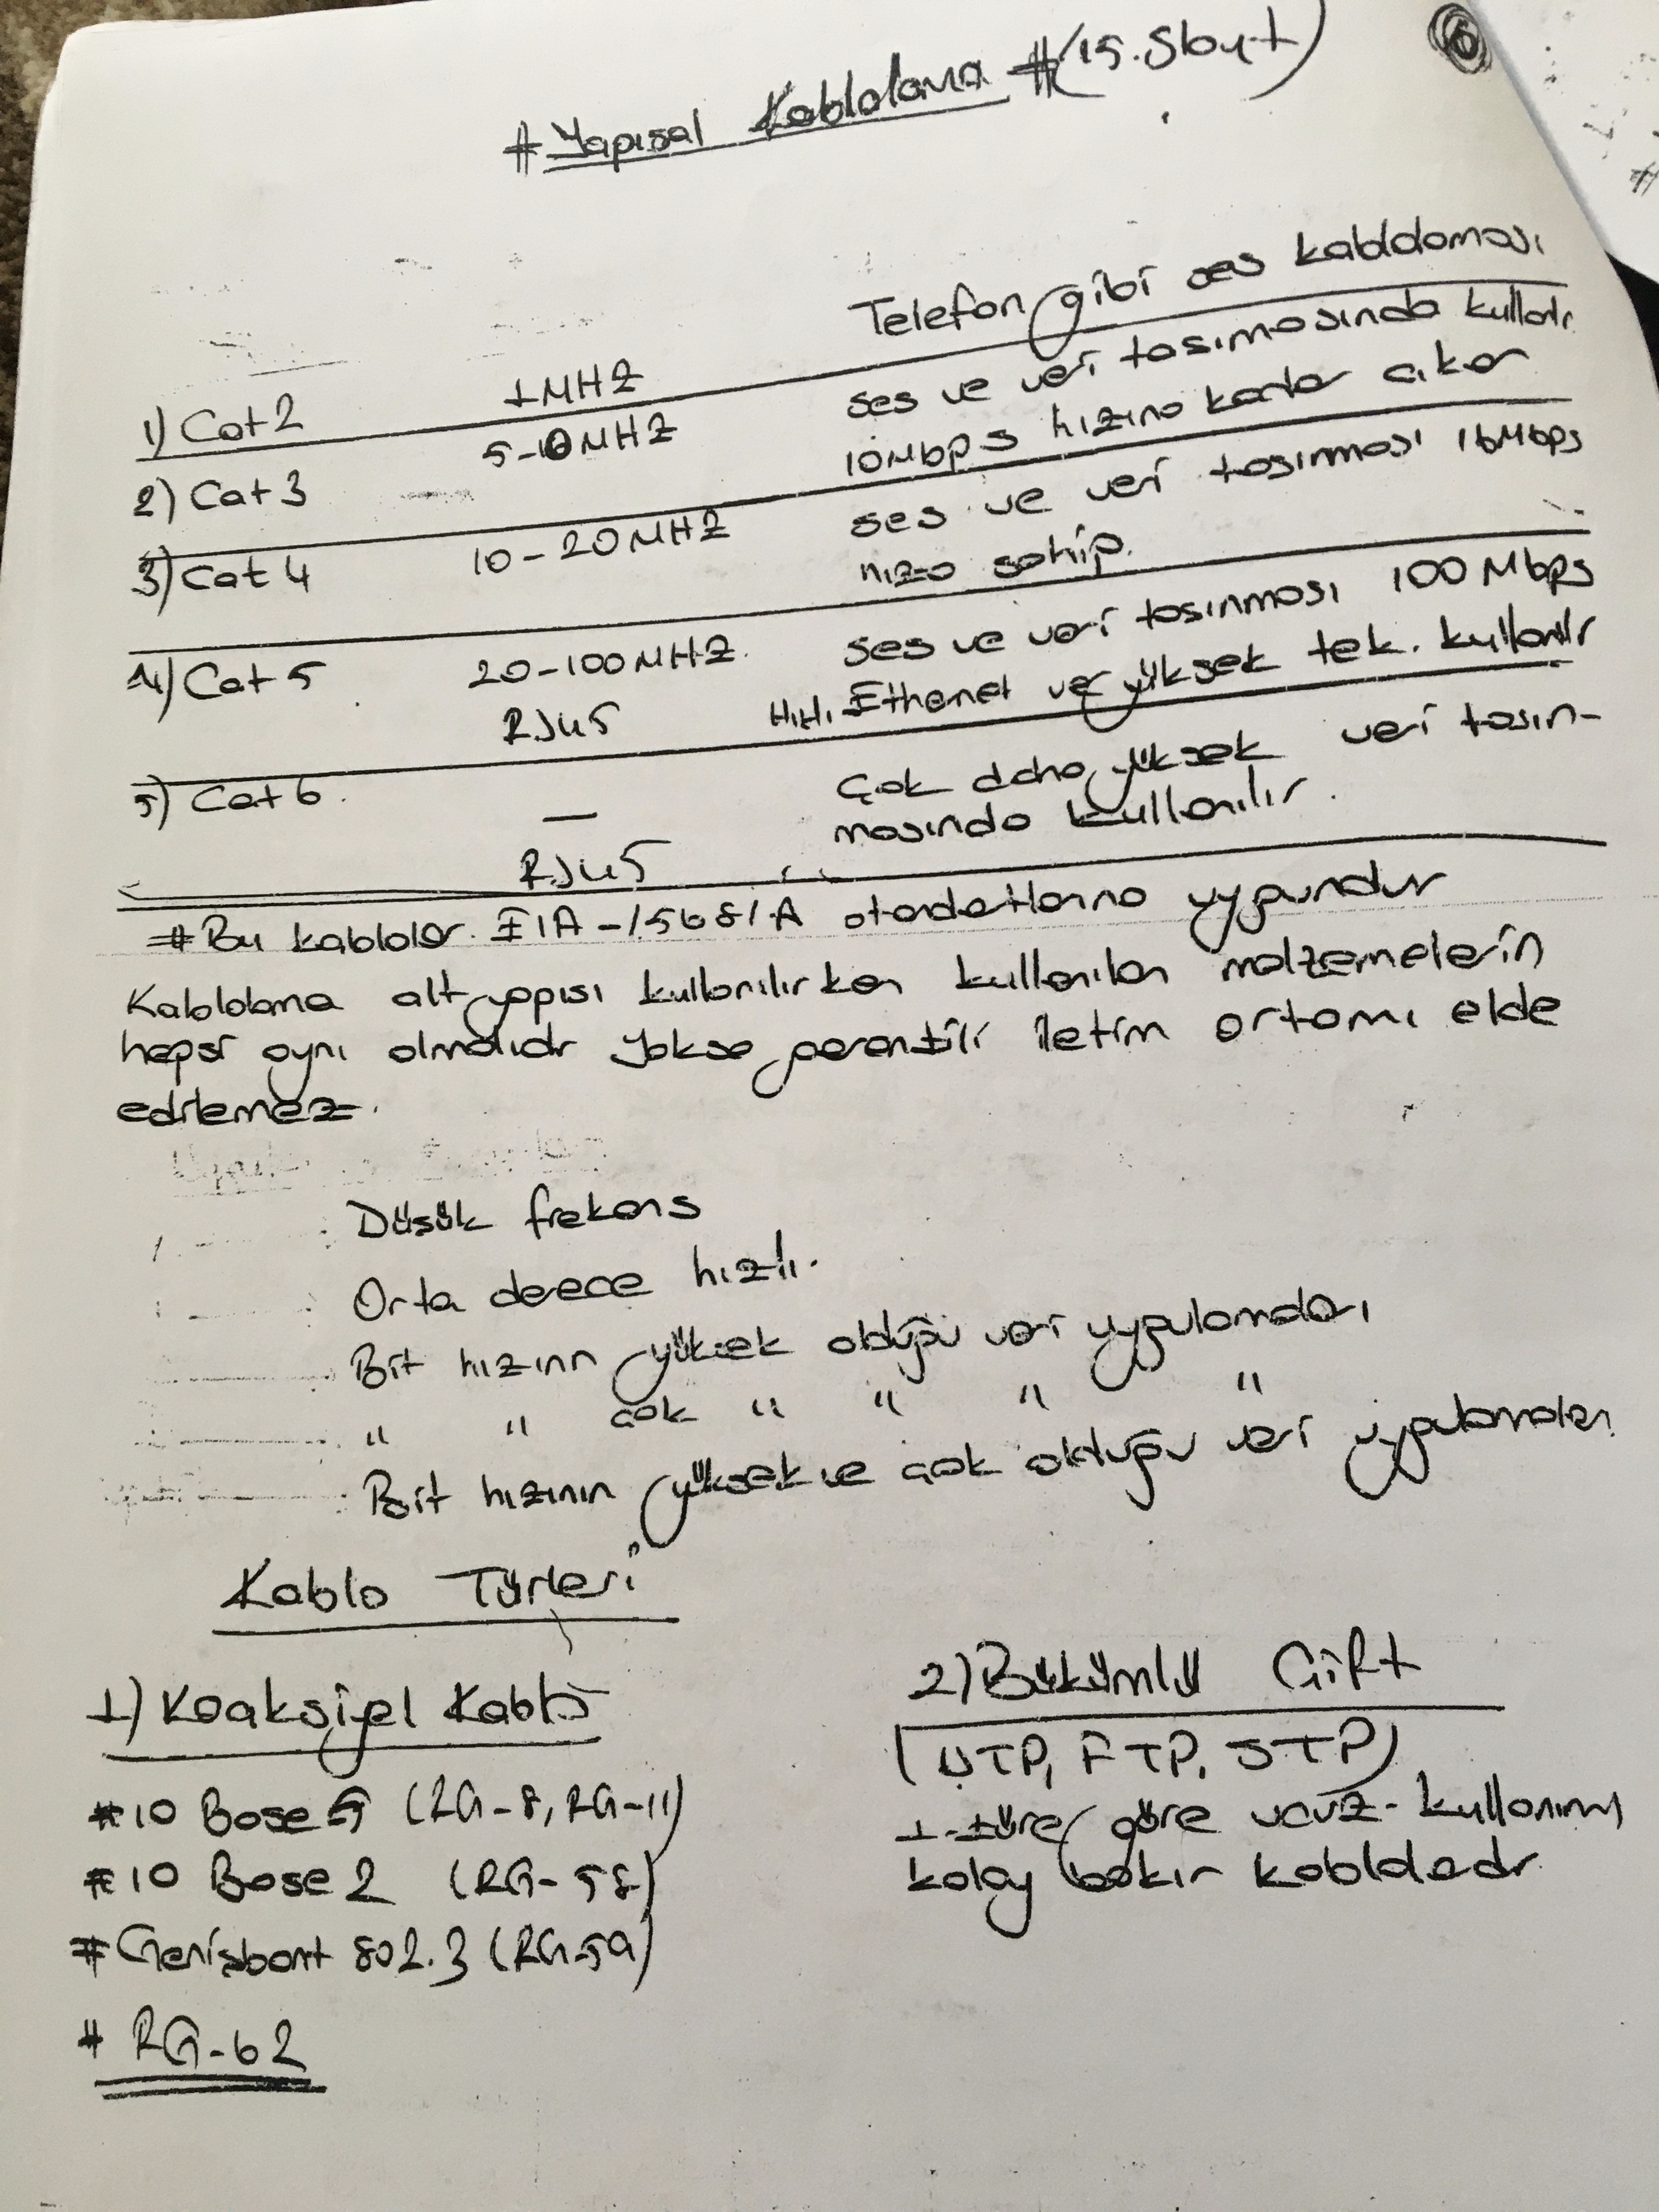 # Yapısal Kablolama # (15. Slayt)
6
Telefon gibi ses kabloloması
1) Cat 2 1 MHZ
ses ve veri tasımasında kullanılr.
2) Cat 3 5-10 MHZ
10 Mbps hızına kadar cıkar
3) Cat 4 10-20 MHZ
ses ve veri tasınması 16 Mbps
hıza sahip.
4) Cat 5 20-100 MHZ.
ses ve veri tasınması 100 Mbps
RJ45
H.H. Ethernet ve yüksek tek. kullanılır
5) Cat 6. —
Çok daha yüksek veri tasın-
masında kullanılır.
RJ45
# Bu kablolar. EIA-/568/A standartlarına uygundur
Kablolama alt yapısı kullanılırken kullanılan malzemelerin
hepsi aynı olmalıdır yoksa garantili iletim ortamı elde
edilemez.
Düsük frekans
Orta derece hızlı.
Bit hızının yüksek olduğu veri uygulamaları
" " çok " " " "
Bit hızının yüksek ve çok olduğu veri uygulamaları
Kablo Türleri
1) Koaksiyel Kablo
# 10 Base 5 (RG-8, RG-11)
# 10 Base 2 (RG-58)
# Genişbant 802.3 (RG-59)
# RG-62
2) Bükümlü Çift
(UTP, FTP, STP)
1. türe göre ucuz - kullanımı
kolay bakır kablodadr.